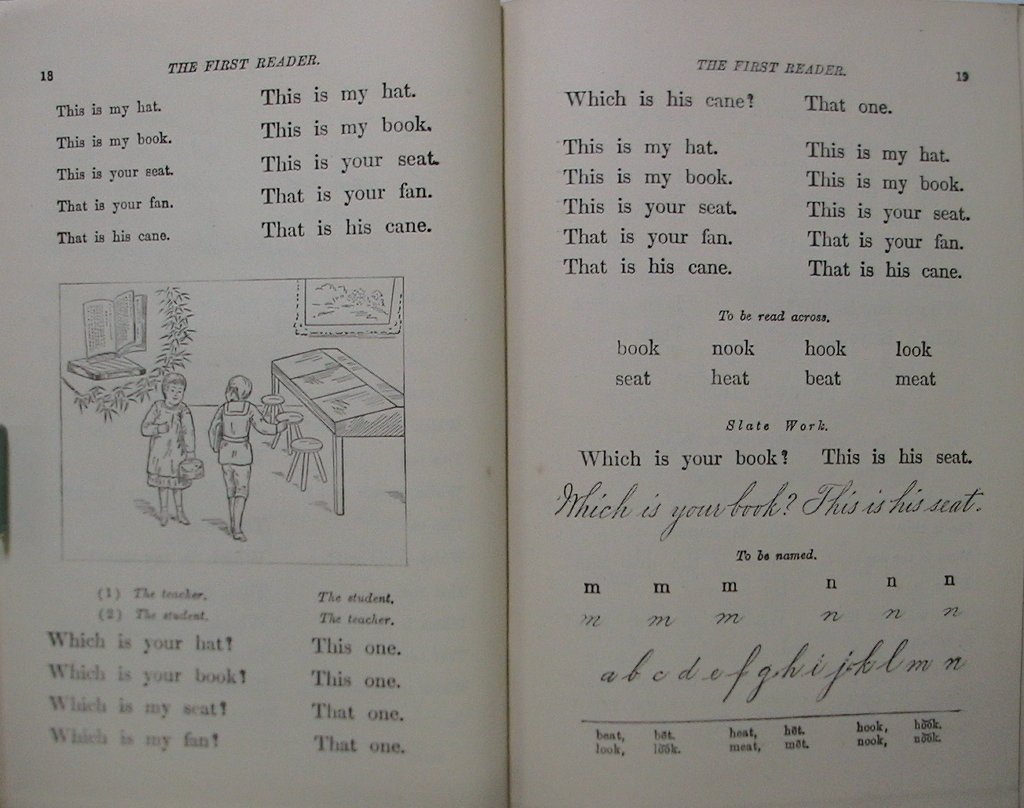 18
THE FIRST READER.
This is my hat. This is my hat.
This is my book. This is my book.
This is your seat. This is your seat.
That is your fan. That is your fan.
That is his cane. That is his cane.
(1) The teacher. The student.
(2) The student. The teacher.
Which is your hat? This one.
Which is your book? This one.
Which is my seat? That one.
Which is my fan? That one.
THE FIRST READER.
19
Which is his cane? That one.
This is my hat. This is my hat.
This is my book. This is my book.
This is your seat. This is your seat.
That is your fan. That is your fan.
That is his cane. That is his cane.
To be read across.
book nook hook look
seat heat beat meat
Slate Work.
Which is your book? This is his seat.
Which is your book? This is his seat.
To be named.
m m m n n n
m m m n n n
a b c d e f g h i j k l m n
beat, bēt. heat, hēt. hook, ho͝ok.
look, lo͝ok. meat, mēt. nook, no͝ok.